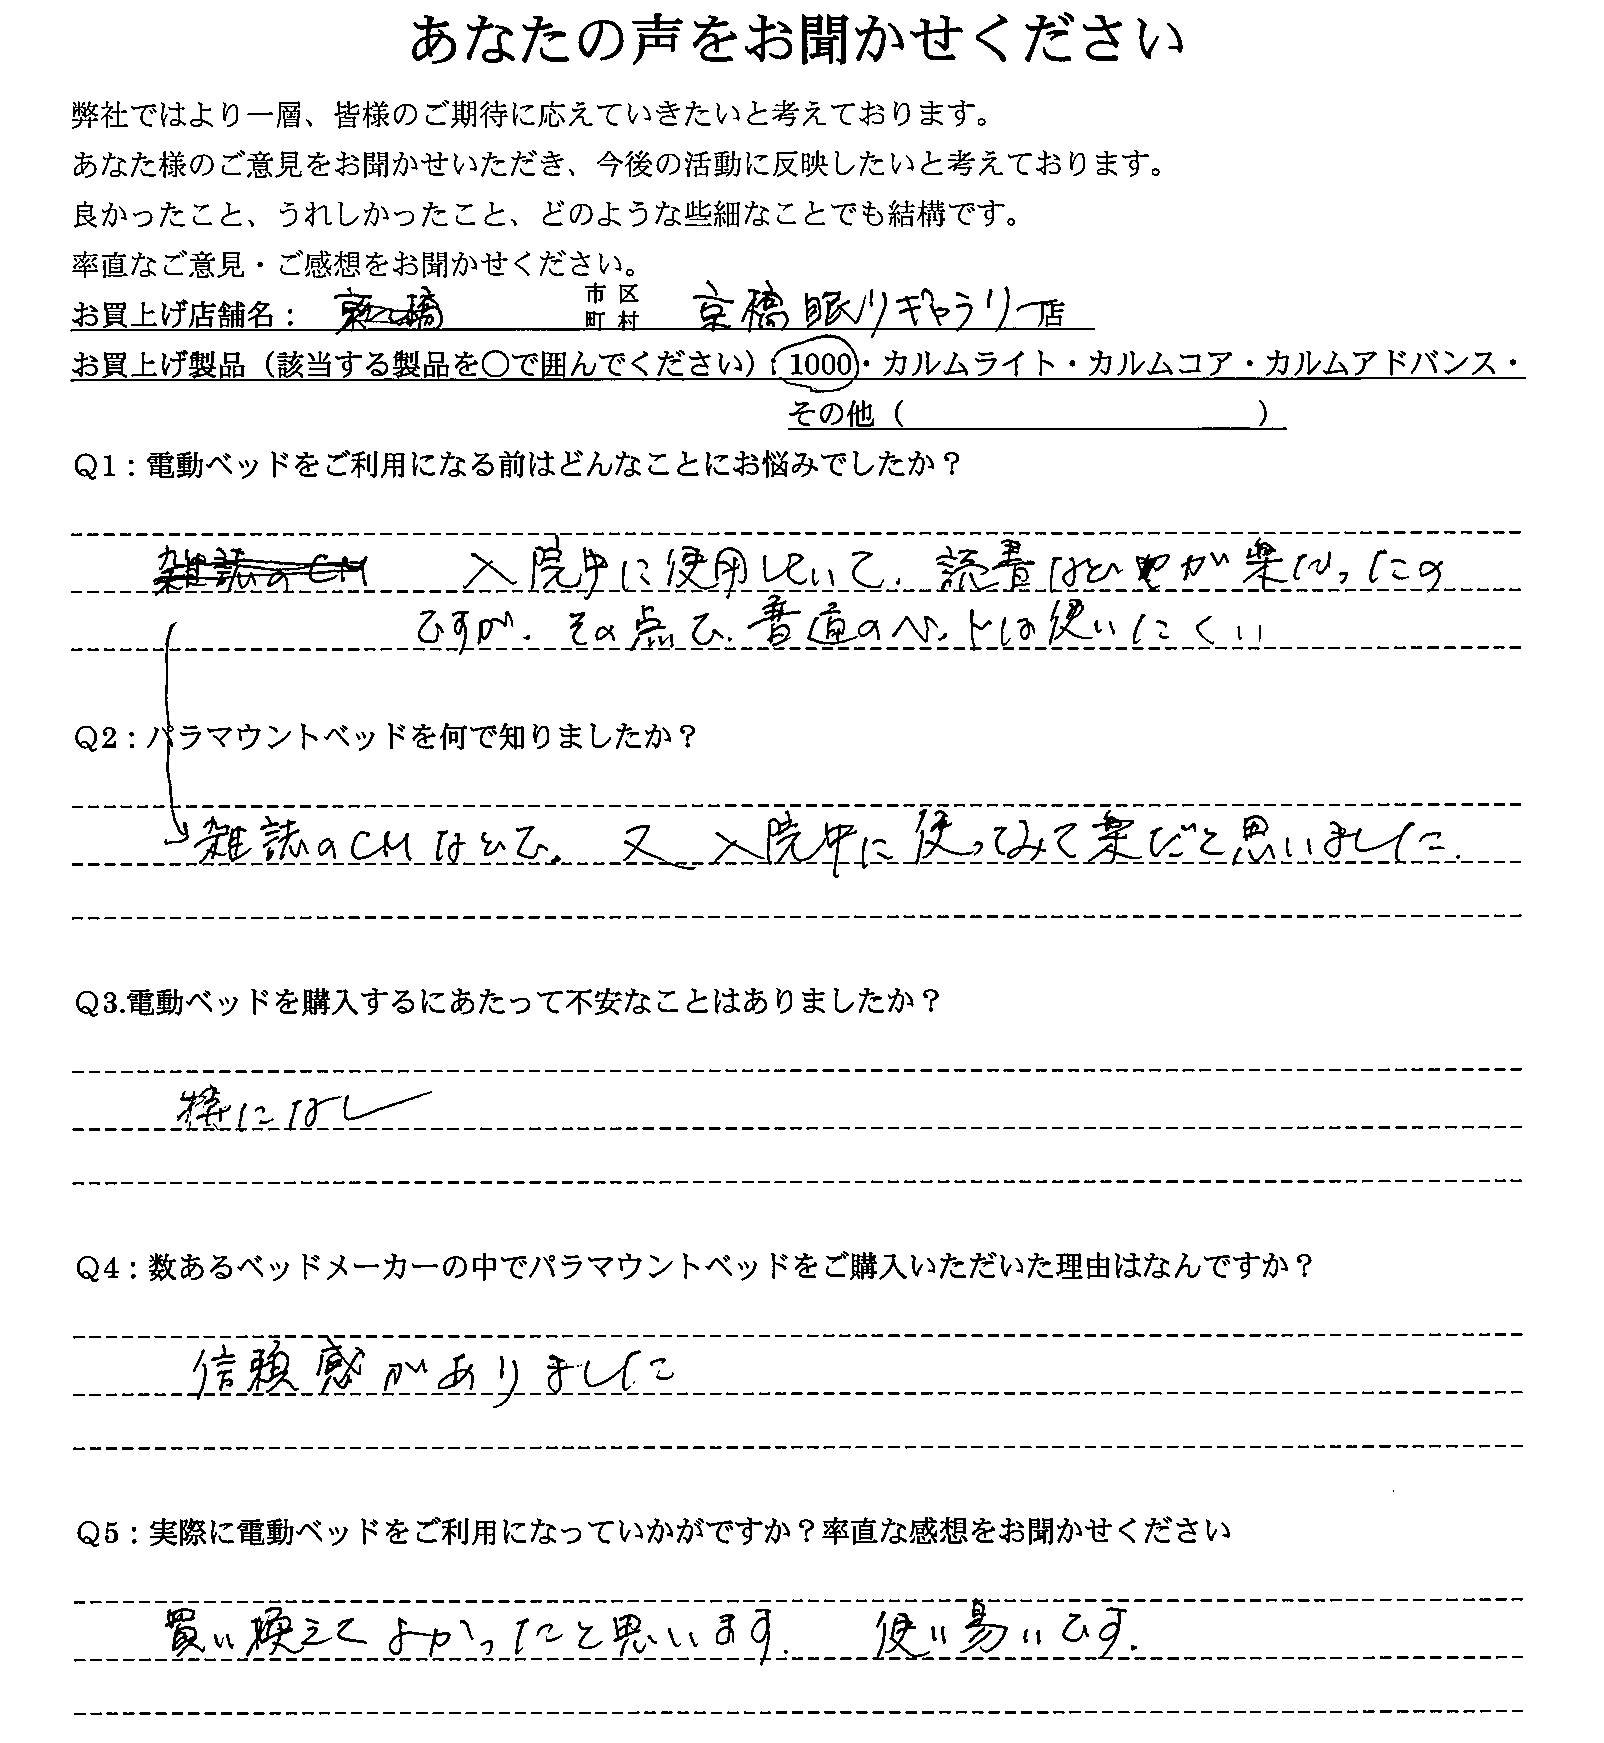 あなたの声をお聞かせください
弊社ではより一層、皆様のご期待に応えていきたいと考えております。
あなた様のご意見をお聞かせいただき、今後の活動に反映したいと考えております。
良かったこと、うれしかったこと、どのような些細なことでも結構です。
率直なご意見・ご感想をお聞かせください。
お買上げ店舗名： 京橋 市区町村 京橋眠りギャラリー店
お買上げ製品（該当する製品を〇で囲んでください）：1000・カルムライト・カルムコア・カルムアドバンス・
その他（　　　）
Q1：電動ベッドをご利用になる前はどんなことにお悩みでしたか？
雑誌のCM 入院中に使用していて、読書などが楽だったの
ですが、その点で、普通のベットは使いにくい
Q2：パラマウントベッドを何で知りましたか？
雑誌のCMなどで、又 入院中に使ってみて楽だと思いました、
Q3.電動ベッドを購入するにあたって不安なことはありましたか？
特になし
Q4：数あるベッドメーカーの中でパラマウントベッドをご購入いただいた理由はなんですか？
信頼感がありました
Q5：実際に電動ベッドをご利用になっていかがですか？率直な感想をお聞かせください
買い換えてよかったと思います、 使い易いです。